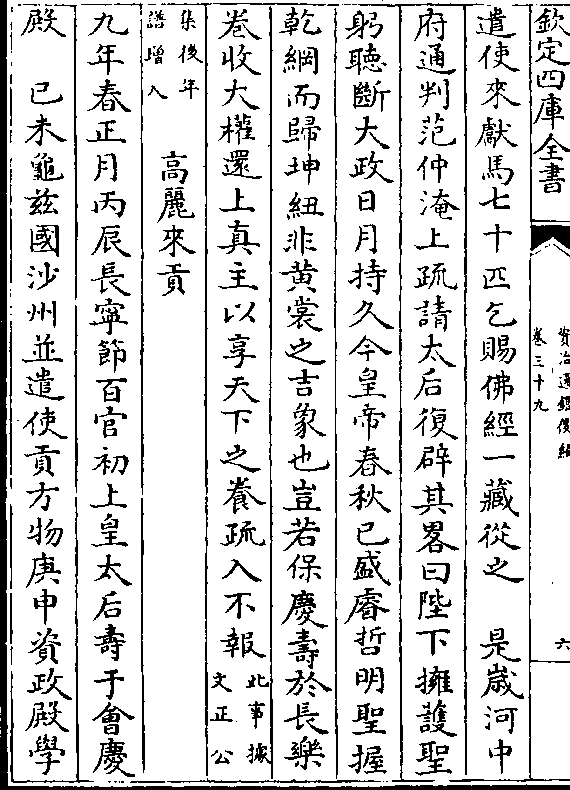 欽定四庫全書
資治通鑑後編
卷三十九
六
遣使來獻馬七十匹乞賜佛經一藏從之　是歳河中
府通判范仲淹上疏請太后復辟其畧曰陛下擁護聖
躬聽斷大政日月持久今皇帝春秋已盛睿哲明聖握
乾綱而歸坤紐非黄裳之吉象也豈若保慶壽於長樂
卷收大權還上真主以享天下之養疏入不報此事據文正公
集後年譜增入　高麗來貢
九年春正月丙辰長寧節百官初上皇太后壽于會慶
殿　己未龜茲國沙州並遣使貢方物庚申資政殿學